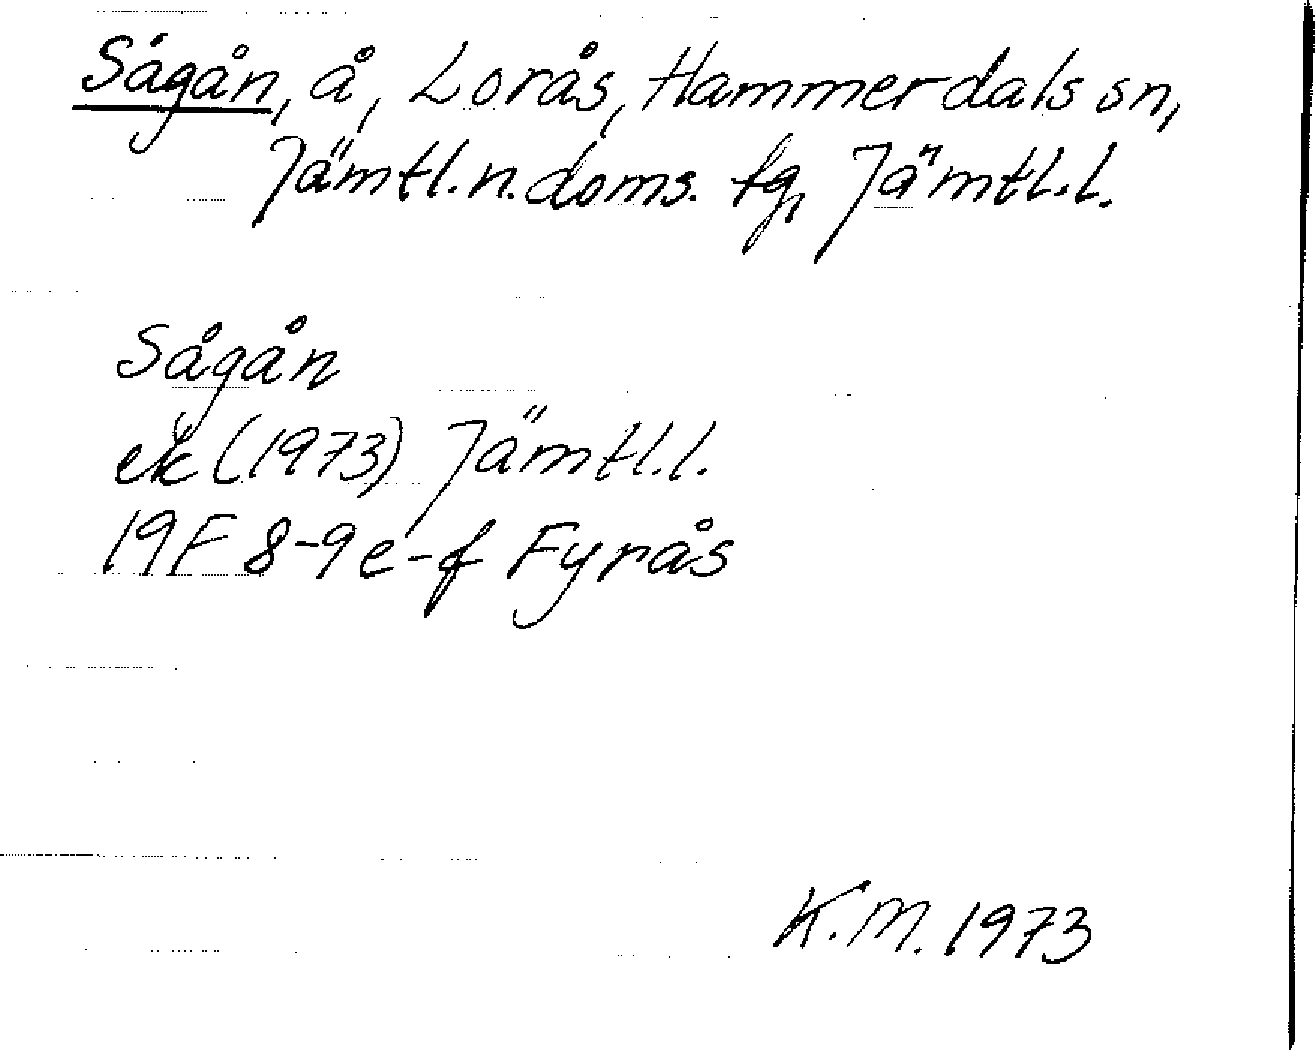 Sågån, å, Lorås, Hammerdals sn,
Jämtl.n.doms. tg, Jämtl.l.
Sågån
ek (1973) Jämtl.l.
19F 8-9e-f Fyrås
K.M. 1973